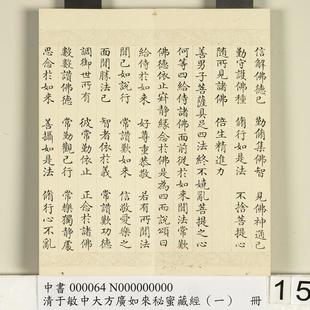 信解佛德已　勤脩集佛智　見佛神通已
勤守護佛種　脩行如是法　不捨菩提心
隨所見諸佛　倍生精進力
善男子菩薩具足四法終不嬈亂菩提之心
何等四給侍諸佛而前從於如來聞法常歎
佛德依止寂靜緣念於佛而說頌曰
給侍於如來　好尊重恭敬　若有所聞法
聞已如說行　常讚歎如來　信敬愛樂之
面聞勝法已　智者依於義　常讚歎功德
調御世所有　彼常勤依止　正念於諸佛
數數讚佛德　常勤觀己行　常樂獨靜處
思念於如來　善攝如是法　脩行心不亂
中書 000064 N000000000
清于敏中大方廣如來秘蜜藏經（一）　冊
15